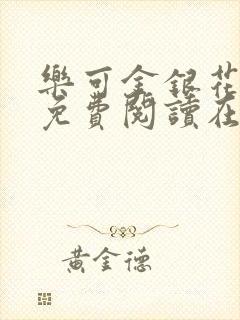 樂可金銀花
免費閱讀在
黃金德